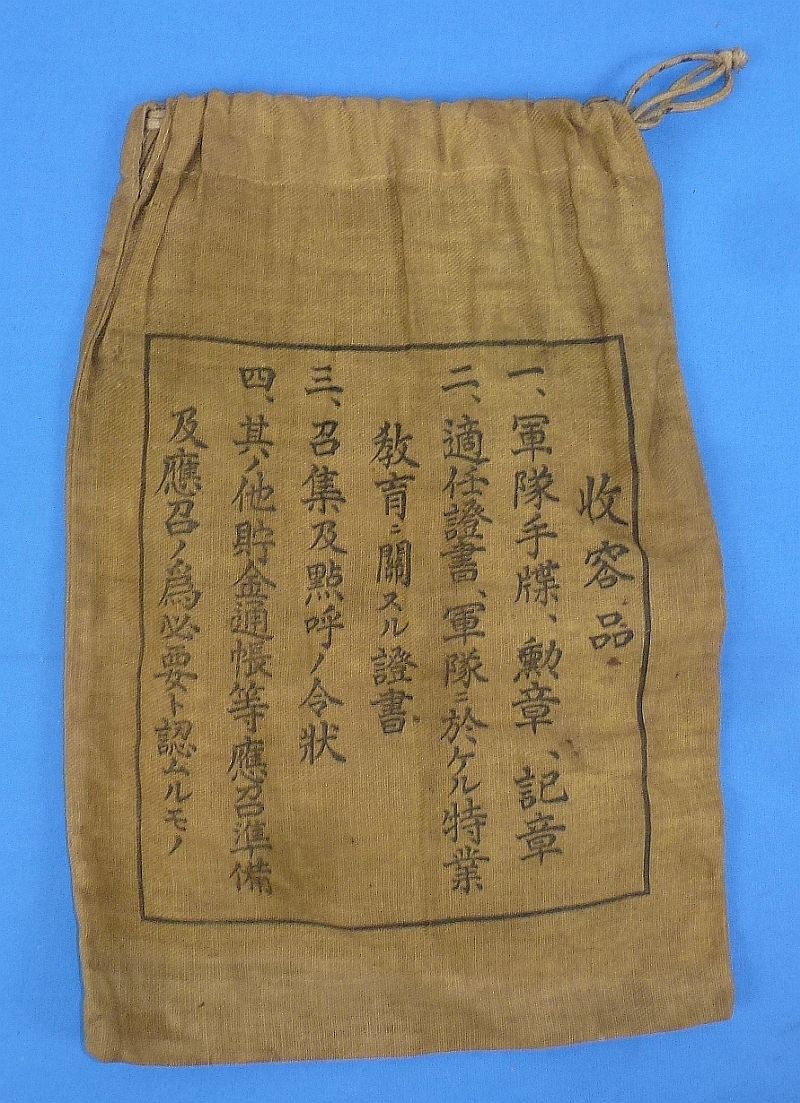 收容品
一、軍隊手牒、勲章、記章
二、適任證書、軍隊ニ於ケル特業
敎育ニ關スル證書
三、召集及點呼ノ令狀
四、其ノ他貯金通帳等應召準備
及應召ノ爲必要ト認ムルモノ